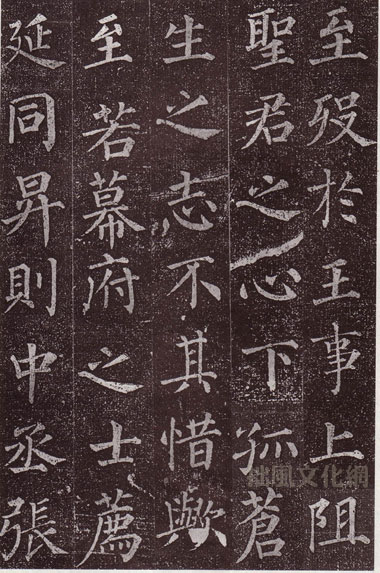 至殁於王事上阻
聖君之心下孤蒼
生之志不其惜歟
至若幕府之士薦
延同昇則中丞張
拙風文化網